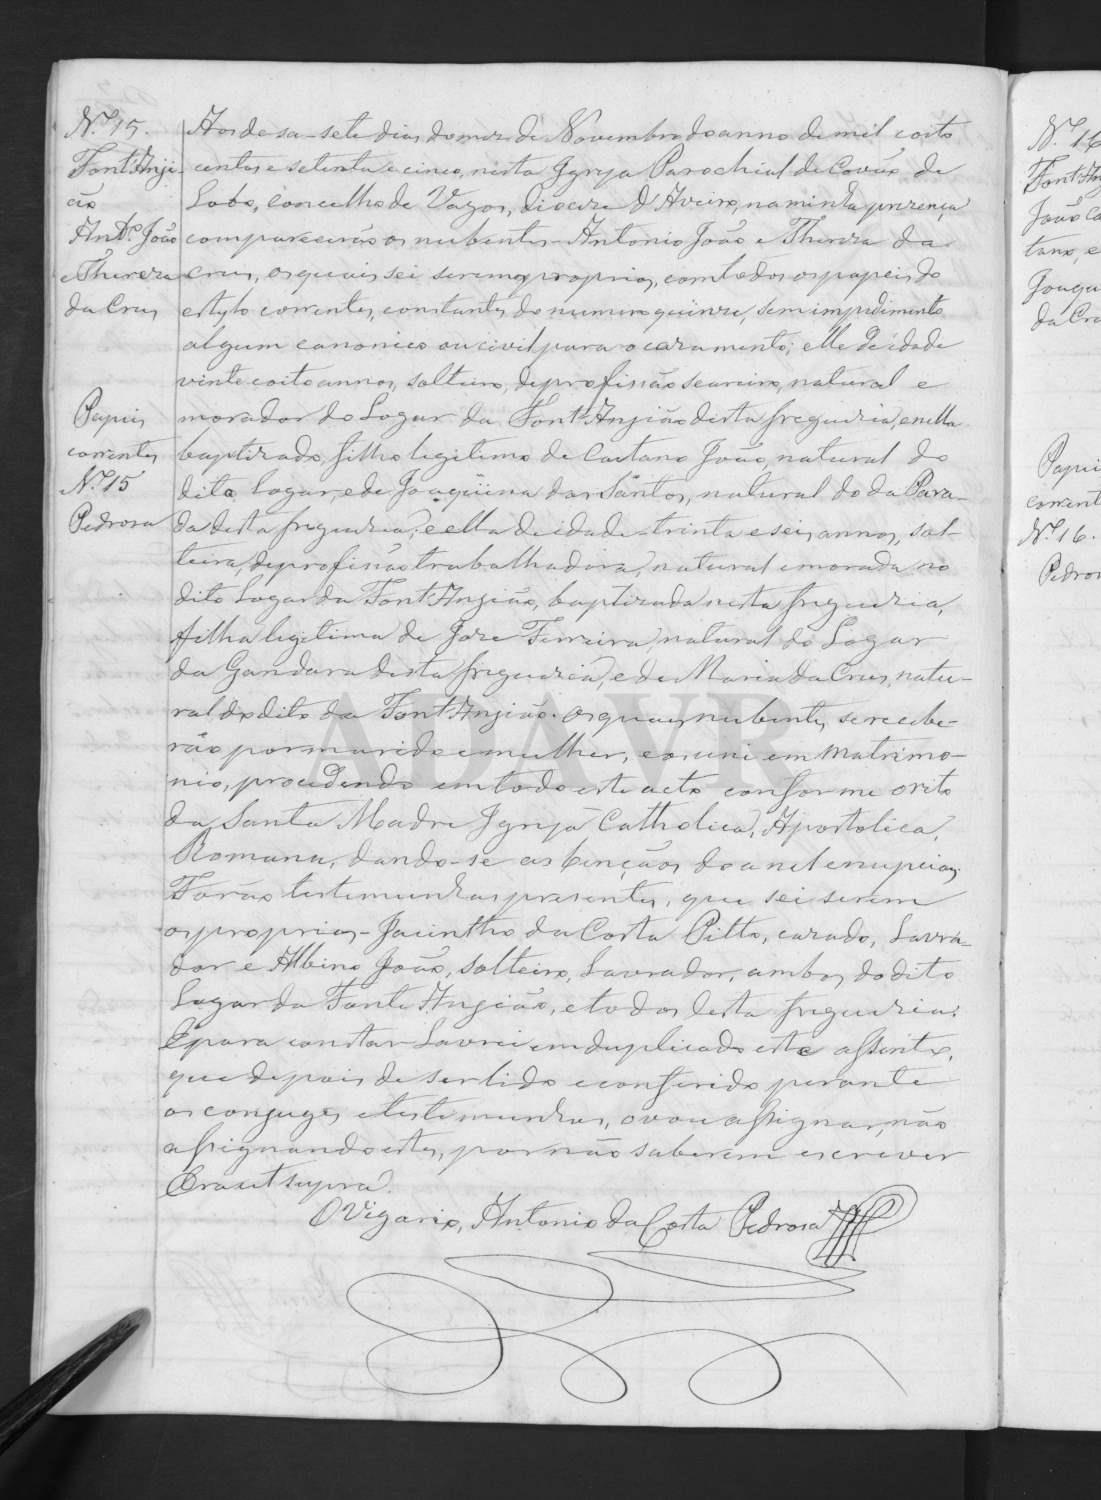 N.º 15.
Font'Anji-
ão
Ant.º João
e Thereza
da Cruz
Papeis
correntes
N.º 15
Pedrosa
Aos desa-sete dias do mez de Novembro do anno de mil oito
centos e setenta e cinco, nesta Igreja Parochial de Covão de
Lobo, concelho de Vagos, diocese d'Aveiro, na minha prezença
comparecerão os nubentes - Antonio João e Thereza da
Cruz, os quais sei serem os proprios, com todos os papeis do
estylo correntes, constantes do numero quinze, sem impedimento
algum canonico ou civil para o cazamento; elle de idade
vinte e oito annos, solteiro, de profissão seareiro, natural e
morador do Logar da Font'Anjião desta freguezia, e nella
baptizado, filho legitimo de Caetano João, natural do
dito logar, e de Joaquina dos Santos, natural do da Para-
da desta freguezia; e ella de idade - trinta e seis annos, sol-
teira, de profissão trabalhadora, natural e morada no
dito Logar da Font'Anjião, baptizada nesta freguezia,
filha legitima de Joze Ferreira, natural do Logar
da Gandara desta freguezia, e de Maria da Cruz, natu-
ral do dito da Font'Anjião. Os quaes nubentes, se recebe-
rão por marido e mulher, e os uni em matrimo-
nio, procedendo em todo este acto conforme o rito
da Santa Madre Igreja Catholica, Apostolica,
Romana, dando-se as bençãos do anel e nupcias.
Forão testemunhas presentes, que sei serem
os proprios - Jacintho da Costa Pitto, cazado, Lavra-
dor e Albino João, solteiro, Lavrador, ambos do dito
Logar da Fonte Anjião, e todos desta freguezia.
E para constar Lavrei em duplicado este assento,
que depois de ser lido e conferido perante
os conjuges e testemunhas, o vou assignar, não
assignando estes, por não saberem escrever
Era ut supra.
O Vigario, Antonio da Costa Pedrosa
ADAVR
N.º 16
Font'An
João Ca
tano, e
Joaqu
da Cru
Papei
corrent
N.º 16.
Pedros